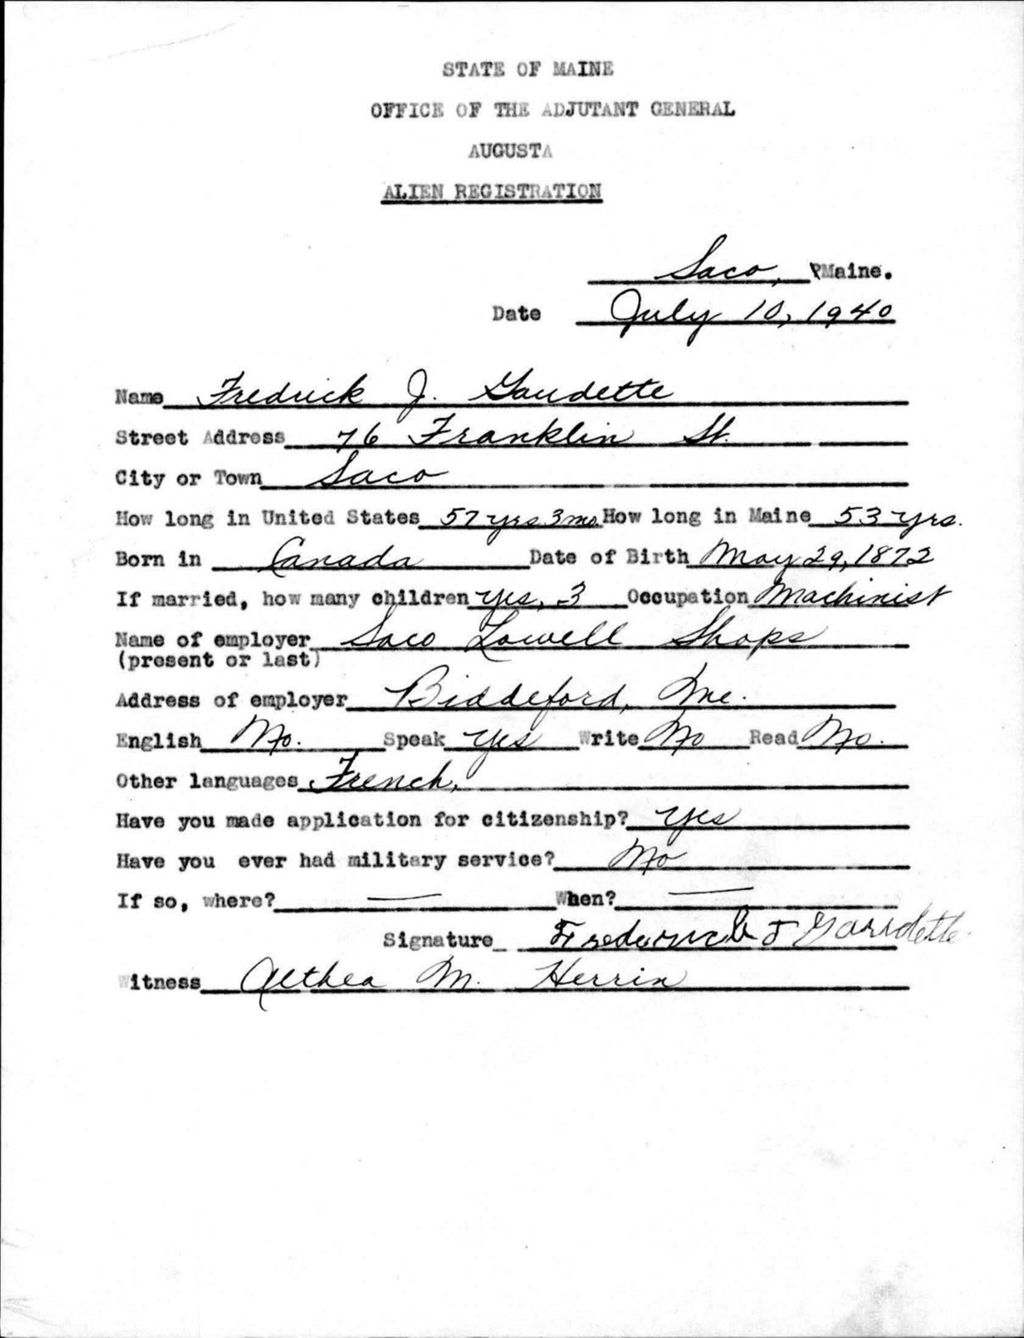 STATE OF MAINE
OFFICE OF THE ADJUTANT GENERAL
AUGUSTA
ALIEN REGISTRATION
Saco, Maine.
Date July 10, 1940
Name Fredrick J. Gaudette
Street Address 76 Franklin St.
City or Town Saco
How long in United States 57 yrs 3 mo. How long in Maine 53 yrs.
Born in Canada Date of Birth May 29, 1872
If married, how many children yes, 3 Occupation Machinist
Name of employer Saco Lowell Shops
(present or last)
Address of employer Biddeford, Me.
English No. Speak Yes Write No Read No.
Other languages French,
Have you made application for citizenship? Yes
Have you ever had military service? No
If so, where? — When? —
Signature Frederick J Gaudette
Witness Althea M. Herrin